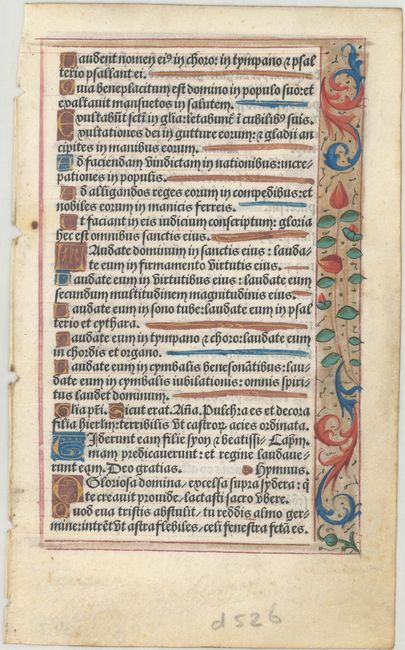 Laudent nomen eiꝰ in choro: in tympano ⁊ psal
terio psallant ei.
Quia beneplacitum est domino in populo suo: et
exaltauit mansuetos in salutem.
Exultabūt scti in glīa: letabunt̄ i cubilibꝰ suis.
Exultationes dei in gutture eorum: ⁊ gladii an
cipites in manibus eorum.
Ad faciendam vindictam in nationibus: incre-
pationes in populis.
Ad alligandos reges eorum in compedibus: et
nobiles eorum in manicis ferreis.
Ut faciant in eis iudicium conscriptum: gloria
hec est omnibus sanctis eius.
Laudate dominum in sanctis eius: lauda-
te eum in firmamento virtutis eius.
Laudate eum in virtutibus eius: laudate eum
secundum multitudinem magnitudinis eius.
Laudate eum in sono tube: laudate eum in psal
terio et cythara.
Laudate eum in tympano ⁊ choro: laudate eum
in chordis et organo.
Laudate eum in cymbalis benesonātibus: lau-
date eum in cymbalis iubilationis: omnis spiri-
tus laudet dominum.
Glia pr̄i. Sicut erat. Añа. Pulchra es et decora
filia hierlm: terribilis vt castrorꝝ acies ordinata.
Uiderunt eam filie syon ⁊ beatissi- Capm̄.
mam predicauerunt: et regine laudaue-
runt eam. Deo gratias. Hymnus.
O Gloriosa domina / excelsa supra sydera: q̄
te creauit prouide / lactasti sacro vbere.
Quod eua tristis abstulit / tu reddis almo ger-
mine: intrēt vt astra flebiles / celi fenestra fctā es.
d 526